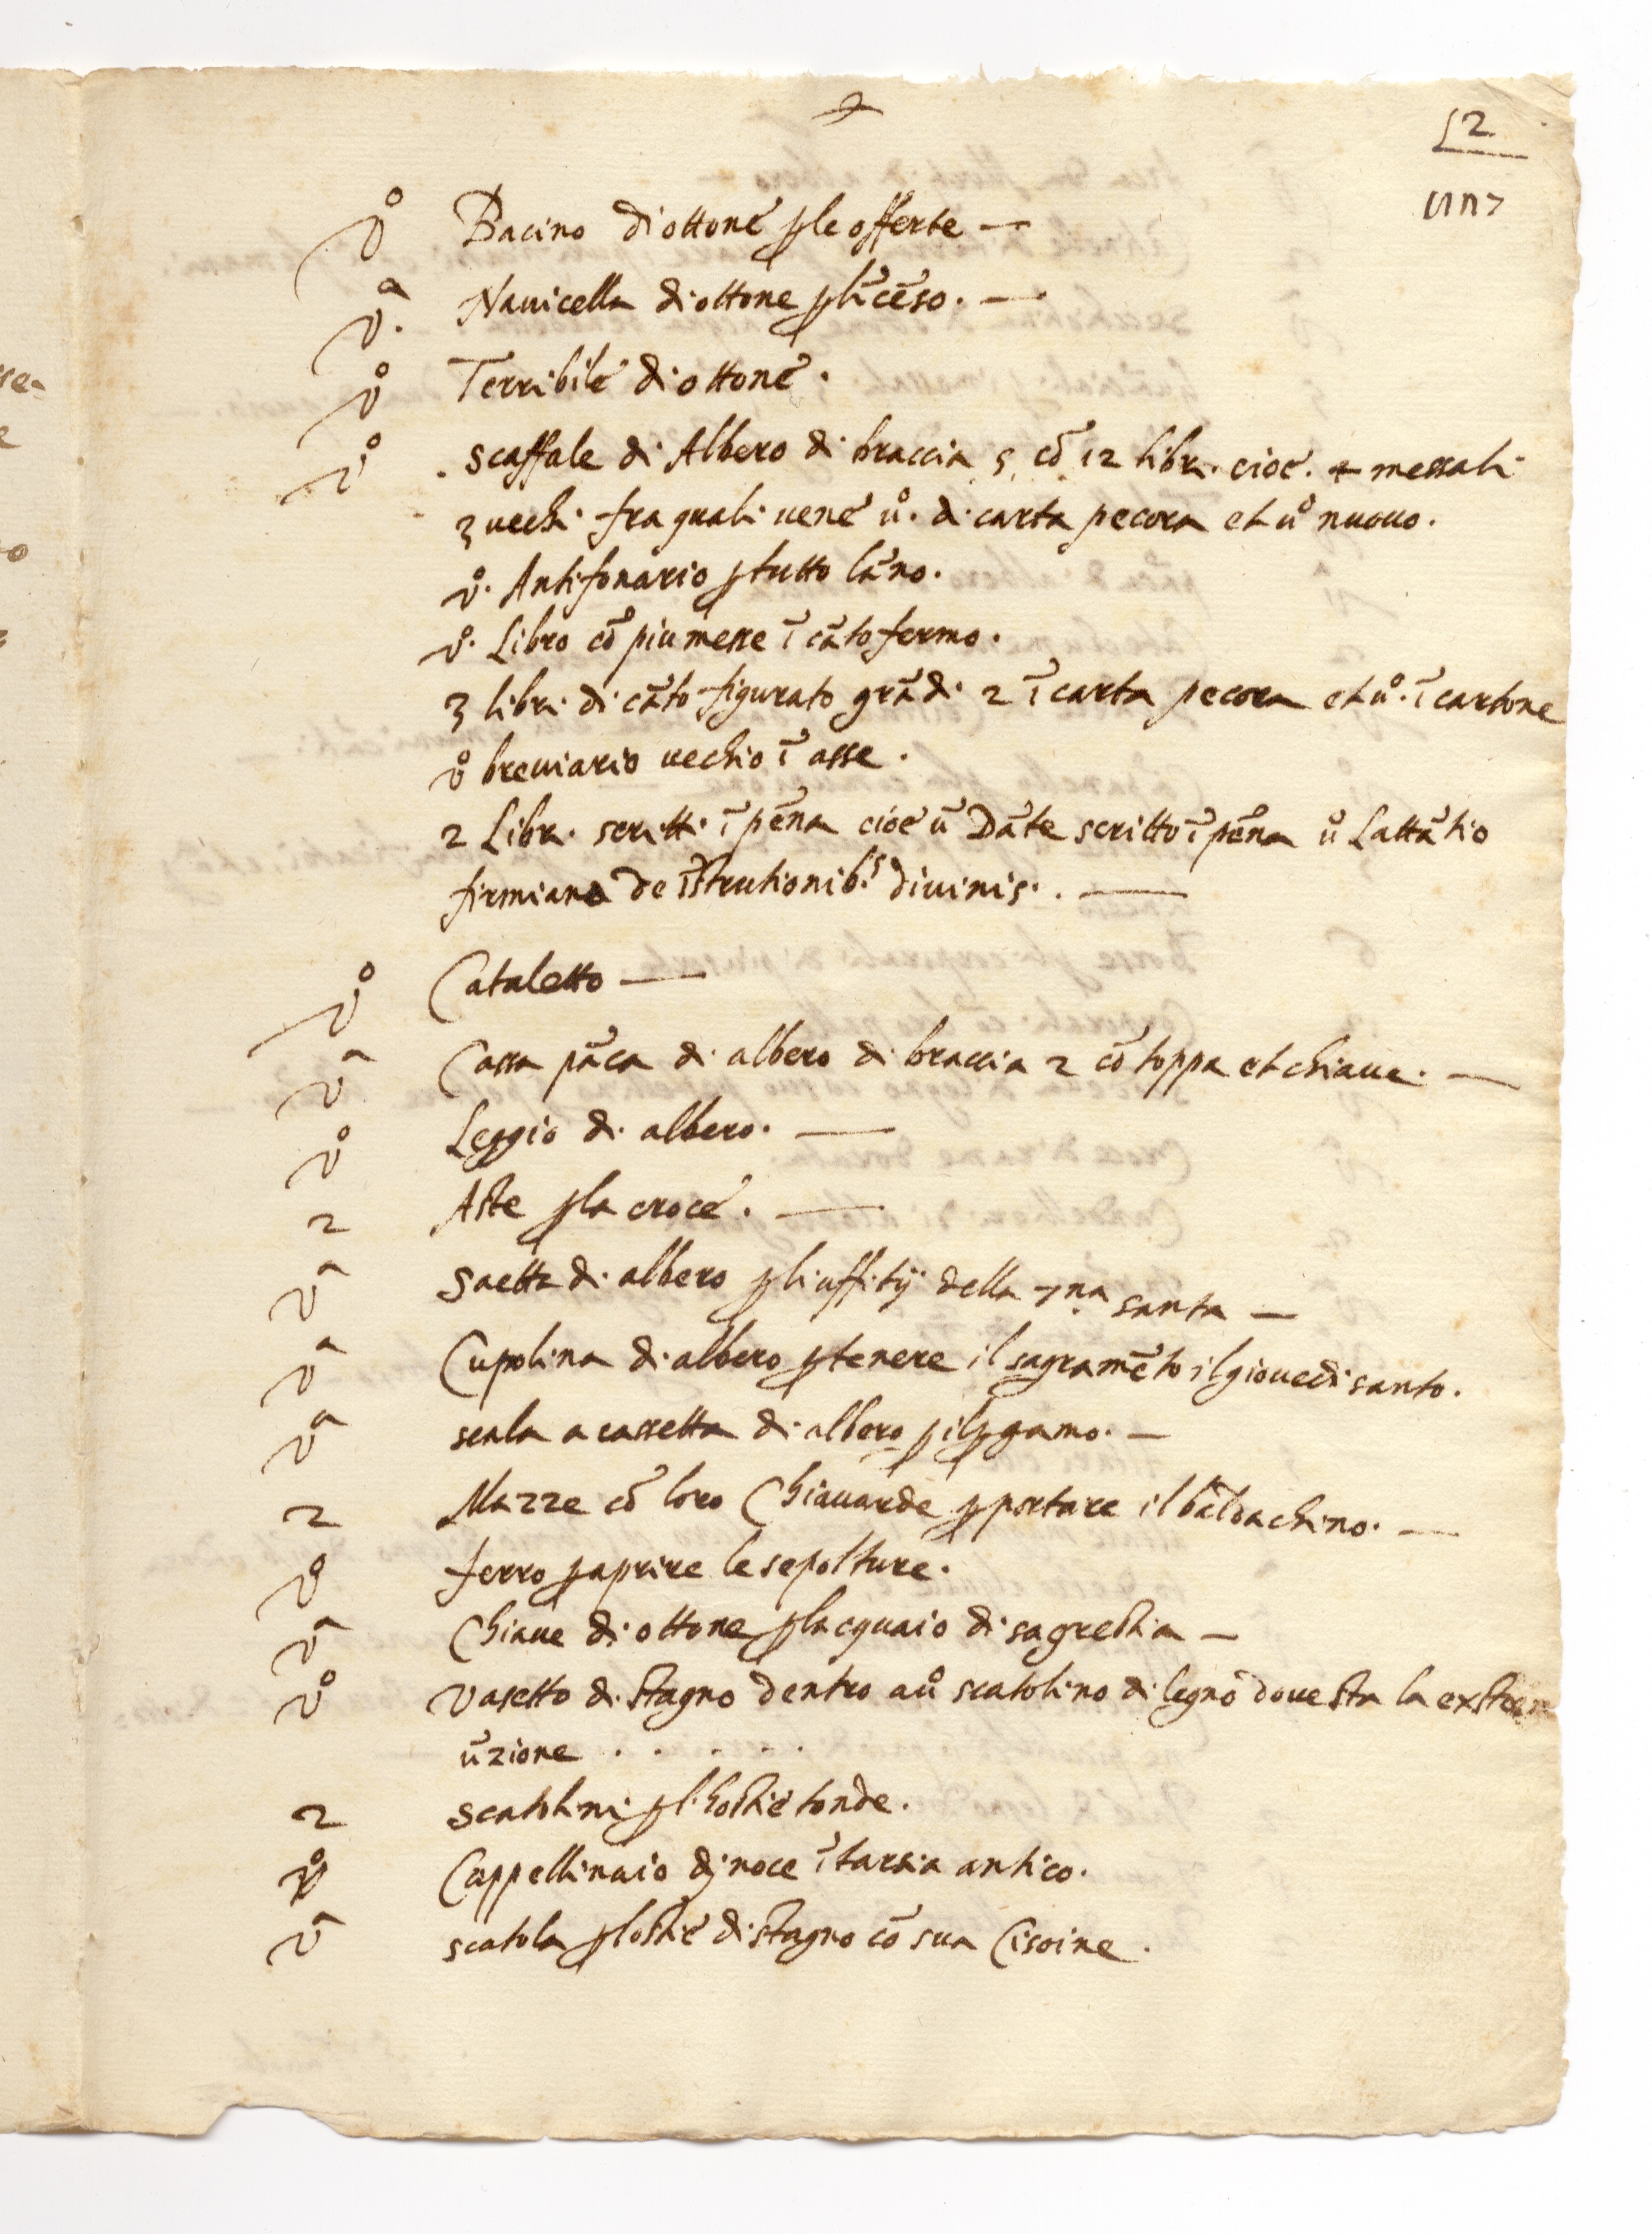 52
Vº Bacino di ottone ꝑ le offerte —
Vª. Nauicella di ottone ꝑ lĩcẽso. —
Vº Terribile di ottone.
Vº scaffale di Albero di braccia 5 cõ 12 libri. cioè. 4 messali
3 uechi fra quali uene uº. di carta pecora et uº nuouo.
vº. Antifonario ꝑ tutto lãno.
vº. Libro cõ piu messe ĩ cãto fermo.
3 libri di cãto figurato grãdi 2 ĩ carta pecora et uº. ĩ cartone
vº breuiario uechio ĩ asse.
2 Libri. scritti ĩ pẽna cioè ũ Dãte scritto ĩ pẽna ũ Lattãtio
firmiano de ĩstrutionib.s diuinis. . —
Vº Cataletto —
Vª Cassa pãca di albero di braccia 2 cõ toppa et chiaue. —
Vº Leggio di albero. —
2 Aste ꝑ la croce. —
Vª Saetta di albero ꝑ li uffitij della 7na santa —
Vª Cupolina di albero ꝑ tenere il sagramẽto il giouedi santo.
Vª scala a cassetta di albero ꝑ il ꝑgamo. —
2 Mazze cõ loro Chiauarde ꝑ portare il baldachino. —
Vº ferro ꝑ aprire le sepolture.
Vª Chiaue di ottone ꝑ lacquaio di sagrestia —
Vº Vasetto di stagno dentro a uº scatolino di legno doue sta la exstrem
ũzione . . . . . .
2 scatolini ꝑ l'hostie tonde.
Vº Cappellinaio di noce ĩtarsia antico.
Vª scatola ꝑ lostie di stagno cõ sua Cisoine.